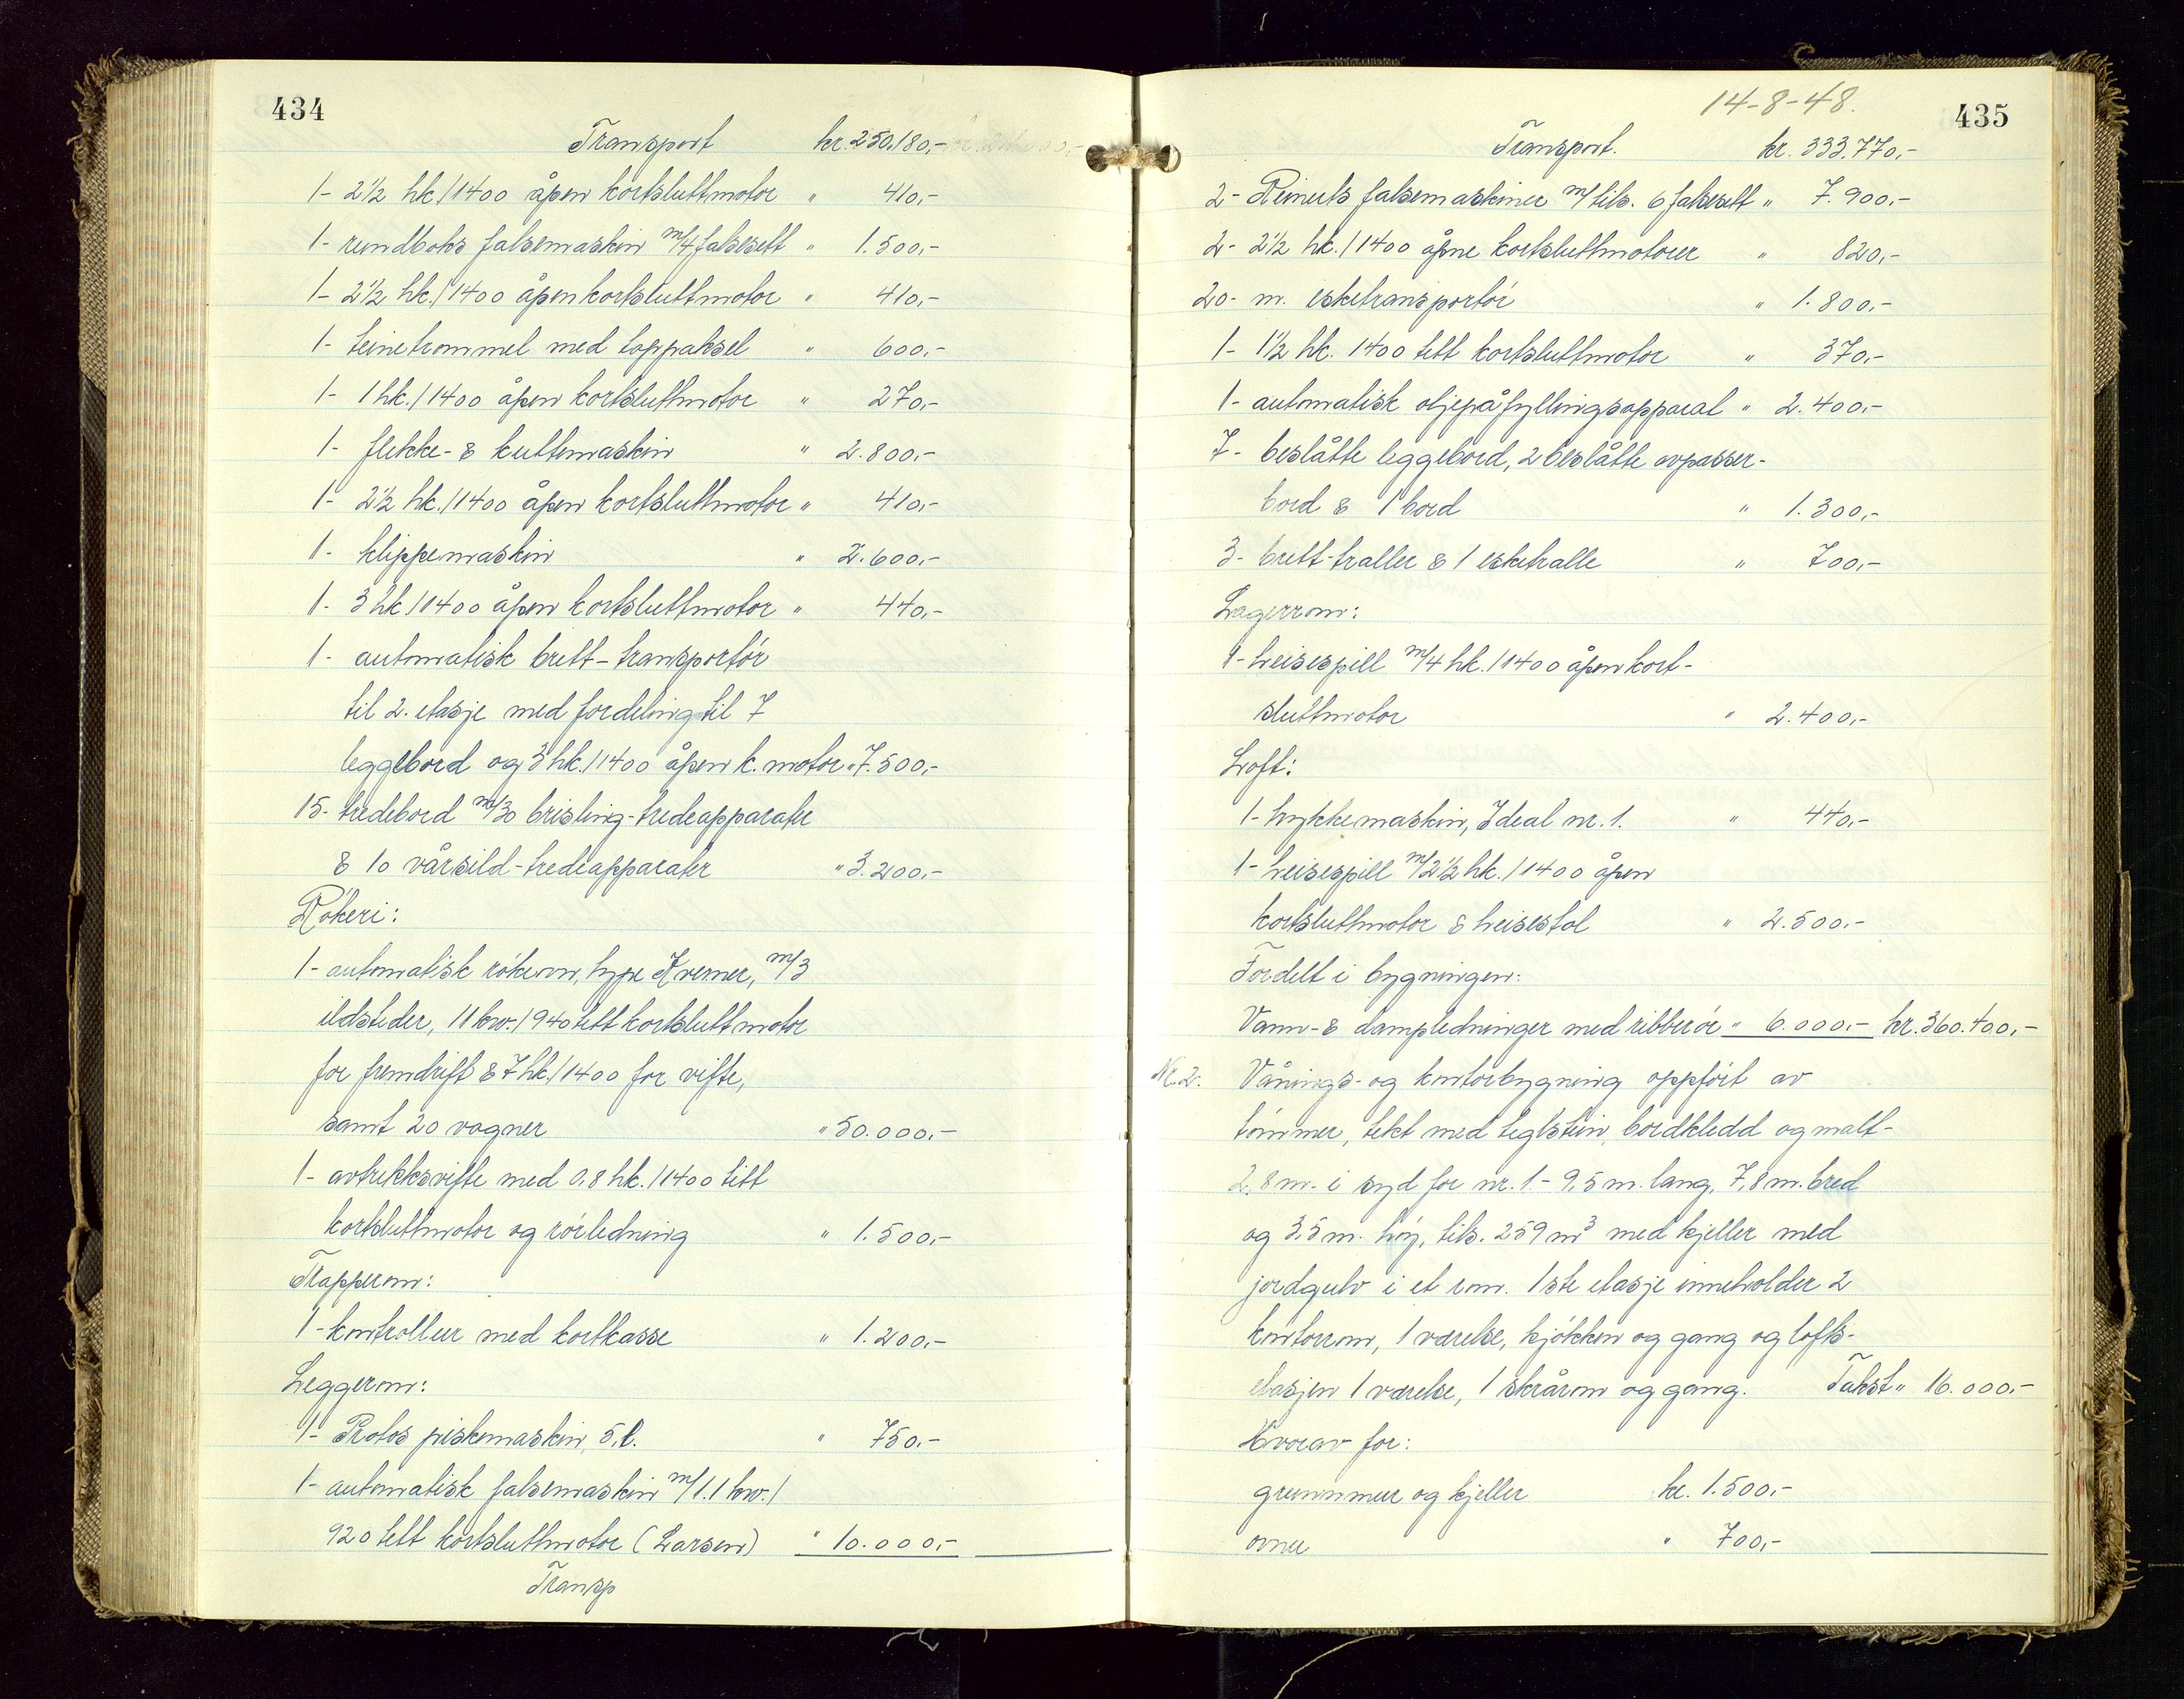 434
Transport kr. 250.180,-
1- 2½ hk/1400 åpen kortsluttmotor " 410,-
1- rundboks falsemaskin m/4 falsesett " 1.500,-
1- 2½ hk./1400 åpen kortsluttmotor " 410,-
1- teinetrommel med toppaksel " 600,-
1- 1 hk./1400 åpen kortsluttmotor " 270,-
1- flekke- & kuttemaskin " 2.800,-
1- 2½ hk./1400 åpen kortsluttmotor " 410,-
1- klippemaskin " 2.600,-
1- 3 hk/1400 åpen kortsluttmotor " 440,-
1- automatisk brett-transportör
til 2. etasje med fordeling til 7
leggebord og 3 hk./1400 åpen k. motor " 7.500,-
15- tredebord m/30 brisling-tredeapparater
& 10 vårsild-tredeapparater " 3.200,-
Rökeri:
1- automatisk rökeovn, type Kverner, m/3
ildsteder, 11 kw./940 tett kortsluttmotor
for fremdrift & 7 hk./1400 for vifte,
samt 20 vogner " 50.000,-
1- avtrekksvifte med 0,8 hk./1400 tett
kortsluttmotor og rörledning " 1.500,-
Trapperom:
1- kontrollur med kortkasse " 1.200,-
Leggerom:
1- Protos piskemaskin, 5 l. " 750,-
1- automatisk falsemaskin m/1.1 kw./
920 tett kortsluttmotor (Larsen) " 10.000,-
Transp
14-8-48.
435
Transport. kr. 333.770,-
2- Reinerts falsemaskiner m/tils. 6 falsesett " 7.900,-
2- 2½ hk./1400 åpne kortsluttmotorer " 820,-
20- m. esketransportör " 1.800,-
1- 1½ hk. 1400 tett kortsluttmotor " 370,-
1- automatisk oljepåfyllingsapparat " 2.400,-
7- beslåtte leggebord, 2 beslåtte avpasser-
bord & 1 bord " 1.300,-
3- brett-traller & 1 esketralle " 700,-
Lagerrom:
1- heisespill m/4 hk./1400 åpen kort-
sluttmotor " 2.400,-
Loft:
1- trykkemaskin, Ideal nr. 1. " 440,-
1- heisespill m/2½ hk./1400 åpen
kortsluttmotor & heisestol " 2.500,-
Fordelt i bygningen:
Vann- & dampledninger med ribberör " 6.000,- kr. 360.400,-
Nr. 2. Vånings- og kontorbygning oppfört av
tömmer, tekt med teglstein, bordkledd og malt-
2,8 m. i syd for nr. 1.- 9,5 m. lang, 7,8 m. bred
og 3,5 m. höy, tils. 259 m³ med kjeller med
jordgulv i et rom. 1ste etasje inneholder 2
kontorrom, 1 værelse, kjökken og gang og lofts-
etasjen 1 værelse, 1 skrårom og gang. Takst " 16.000,-
Hvorav for:
grunnmur og kjeller kr. 1.500,-
ovner " 700,-